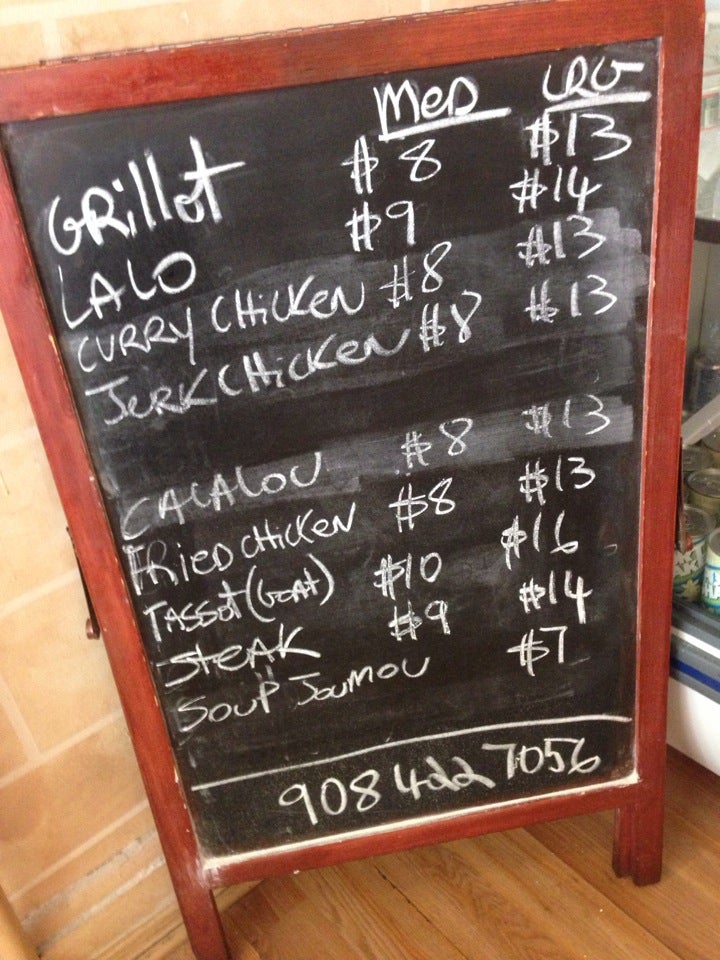 MeD LRG
GRillot $8 $13
LALO $9 $14
CURRY CHiCKeN $8 $13
JeRK CHiCKeN $8 $13
CALALOU $8 $13
FRieD CHiCKeN $8 $13
TASSOt (GOAt) $10 $16
SteAK $9 $14
SOUP JOUMOU $7
908 422 7056